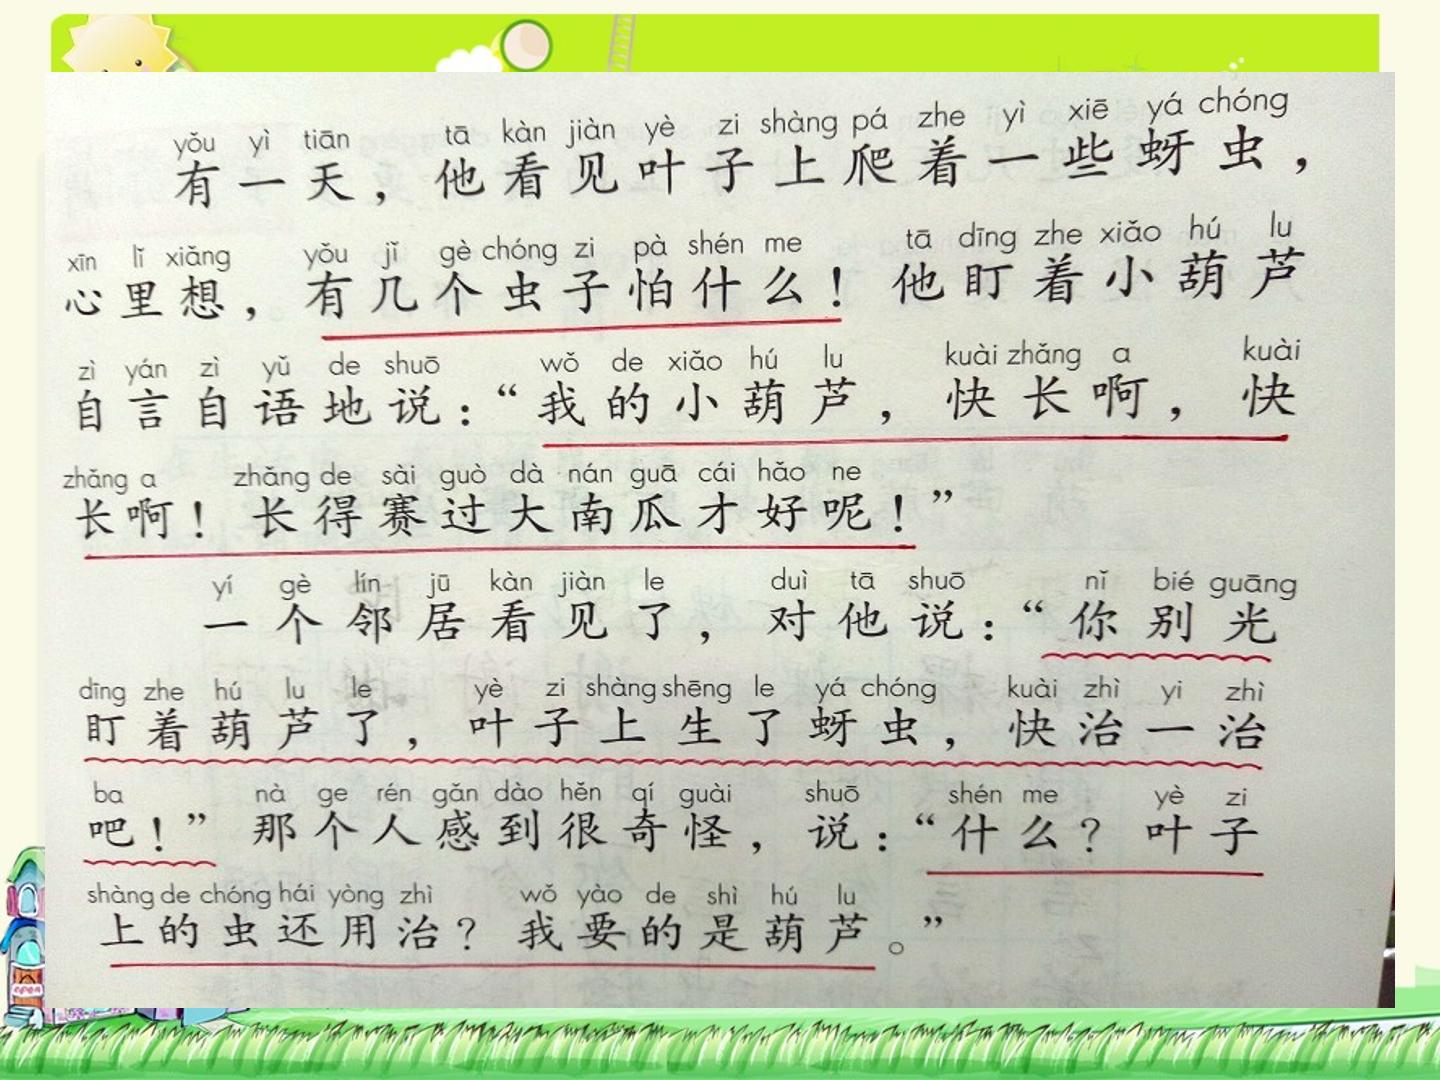 yǒu yì tiān tā kàn jiàn yè zi shàng pá zhe yì xiē yá chóng
有一天，他看见叶子上爬着一些蚜虫，
xīn lǐ xiǎng yǒu jǐ gè chóng zi pà shén me tā dīng zhe xiǎo hú lu
心里想，有几个虫子怕什么！他盯着小葫芦
zì yán zì yǔ de shuō wǒ de xiǎo hú lu kuài zhǎng a kuài
自言自语地说：“我的小葫芦，快长啊，快
zhǎng a zhǎng de sài guò dà nán guā cái hǎo ne
长啊！长得赛过大南瓜才好呢！”
yí gè lín jū kàn jiàn le duì tā shuō nǐ bié guāng
一个邻居看见了，对他说：“你别光
dīng zhe hú lu le yè zi shàng shēng le yá chóng kuài zhì yi zhì
盯着葫芦了，叶子上生了蚜虫，快治一治
ba nà ge rén gǎn dào hěn qí guài shuō shén me yè zi
吧！”那个人感到很奇怪，说：“什么？叶子
shàng de chóng hái yòng zhì wǒ yào de shì hú lu
上的虫还用治？我要的是葫芦。”
open